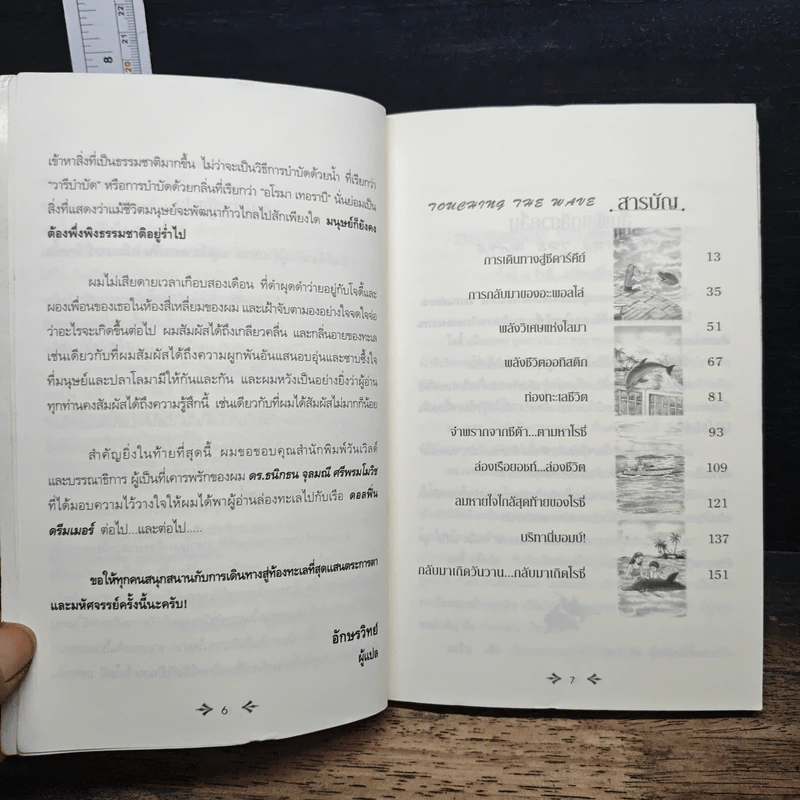 8
22
21
20
เข้าหาสิ่งที่เป็นธรรมชาติมากขึ้น ไม่ว่าจะเป็นวิธีการบำบัดด้วยน้ำ ที่เรียกว่า
"วารีบำบัด" หรือการบำบัดด้วยกลิ่นที่เรียกว่า "อโรมา เทอราปี" นั่นย่อมเป็น
สิ่งที่แสดงว่าแม้ชีวิตมนุษย์จะพัฒนาก้าวไกลไปสักเพียงใด มนุษย์ก็ยังคง
ต้องพึ่งพิงธรรมชาติอยู่ร่ำไป
ผมไม่เสียดายเวลาเกือบสองเดือน ที่ดำผุดดำว่ายอยู่กับโจดี้และ
ผองเพื่อนของเธอในห้องสี่เหลี่ยมของผม และเฝ้าจับตามองอย่างใจจดใจจ่อ
ว่าอะไรจะเกิดขึ้นต่อไป ผมสัมผัสได้ถึงเกลียวคลื่น และกลิ่นอายของทะเล
เช่นเดียวกับที่ผมสัมผัสได้ถึงความผูกพันอันแสนอบอุ่นและซาบซึ้งใจ
ที่มนุษย์และปลาโลมามีให้กันและกัน และผมหวังเป็นอย่างยิ่งว่าผู้อ่าน
ทุกท่านคงสัมผัสได้ถึงความรู้สึกนี้ เช่นเดียวกับที่ผมได้สัมผัสไม่มากก็น้อย
สำคัญยิ่งในท้ายที่สุดนี้ ผมขอขอบคุณสำนักพิมพ์วันเวิลด์
และบรรณาธิการ ผู้เป็นที่เคารพรักของผม ดร.ธนิกธน จุลมณี ศรีพรมโมวิช
ที่ได้มอบความไว้วางใจให้ผมได้พาผู้อ่านล่องทะเลไปกับเรือ ดอลฟิน
ดรีมเมอร์ ต่อไป...และต่อไป.....
ขอให้ทุกคนสนุกสนานกับการเดินทางสู่ท้องทะเลที่สุดแสนตระการตา
และมหัศจรรย์ครั้งนี้นะครับ!
อักษรวิทย์
ผู้แปล
6
TOUCHING THE WAVE .สารบัญ.
การเดินทางสู่ซีดาร์คีย์ 13
การกลับมาของอะพอลโล่ 35
พลังวิเศษแห่งโลมา 51
พลังชีวิตออทิสติก 67
ท่องทะเลชีวิต 81
จำพรากจากซีต้า...ตามหาโรซี่ 93
ล่องเรือยอชท์...ล่องชีวิต 109
ลมหายใจใกล้สุดท้ายของโรซี่ 121
บริทานี่บอมบ์! 137
กลับมาเถิดวันวาน...กลับมาเถิดโรซี่ 151
7